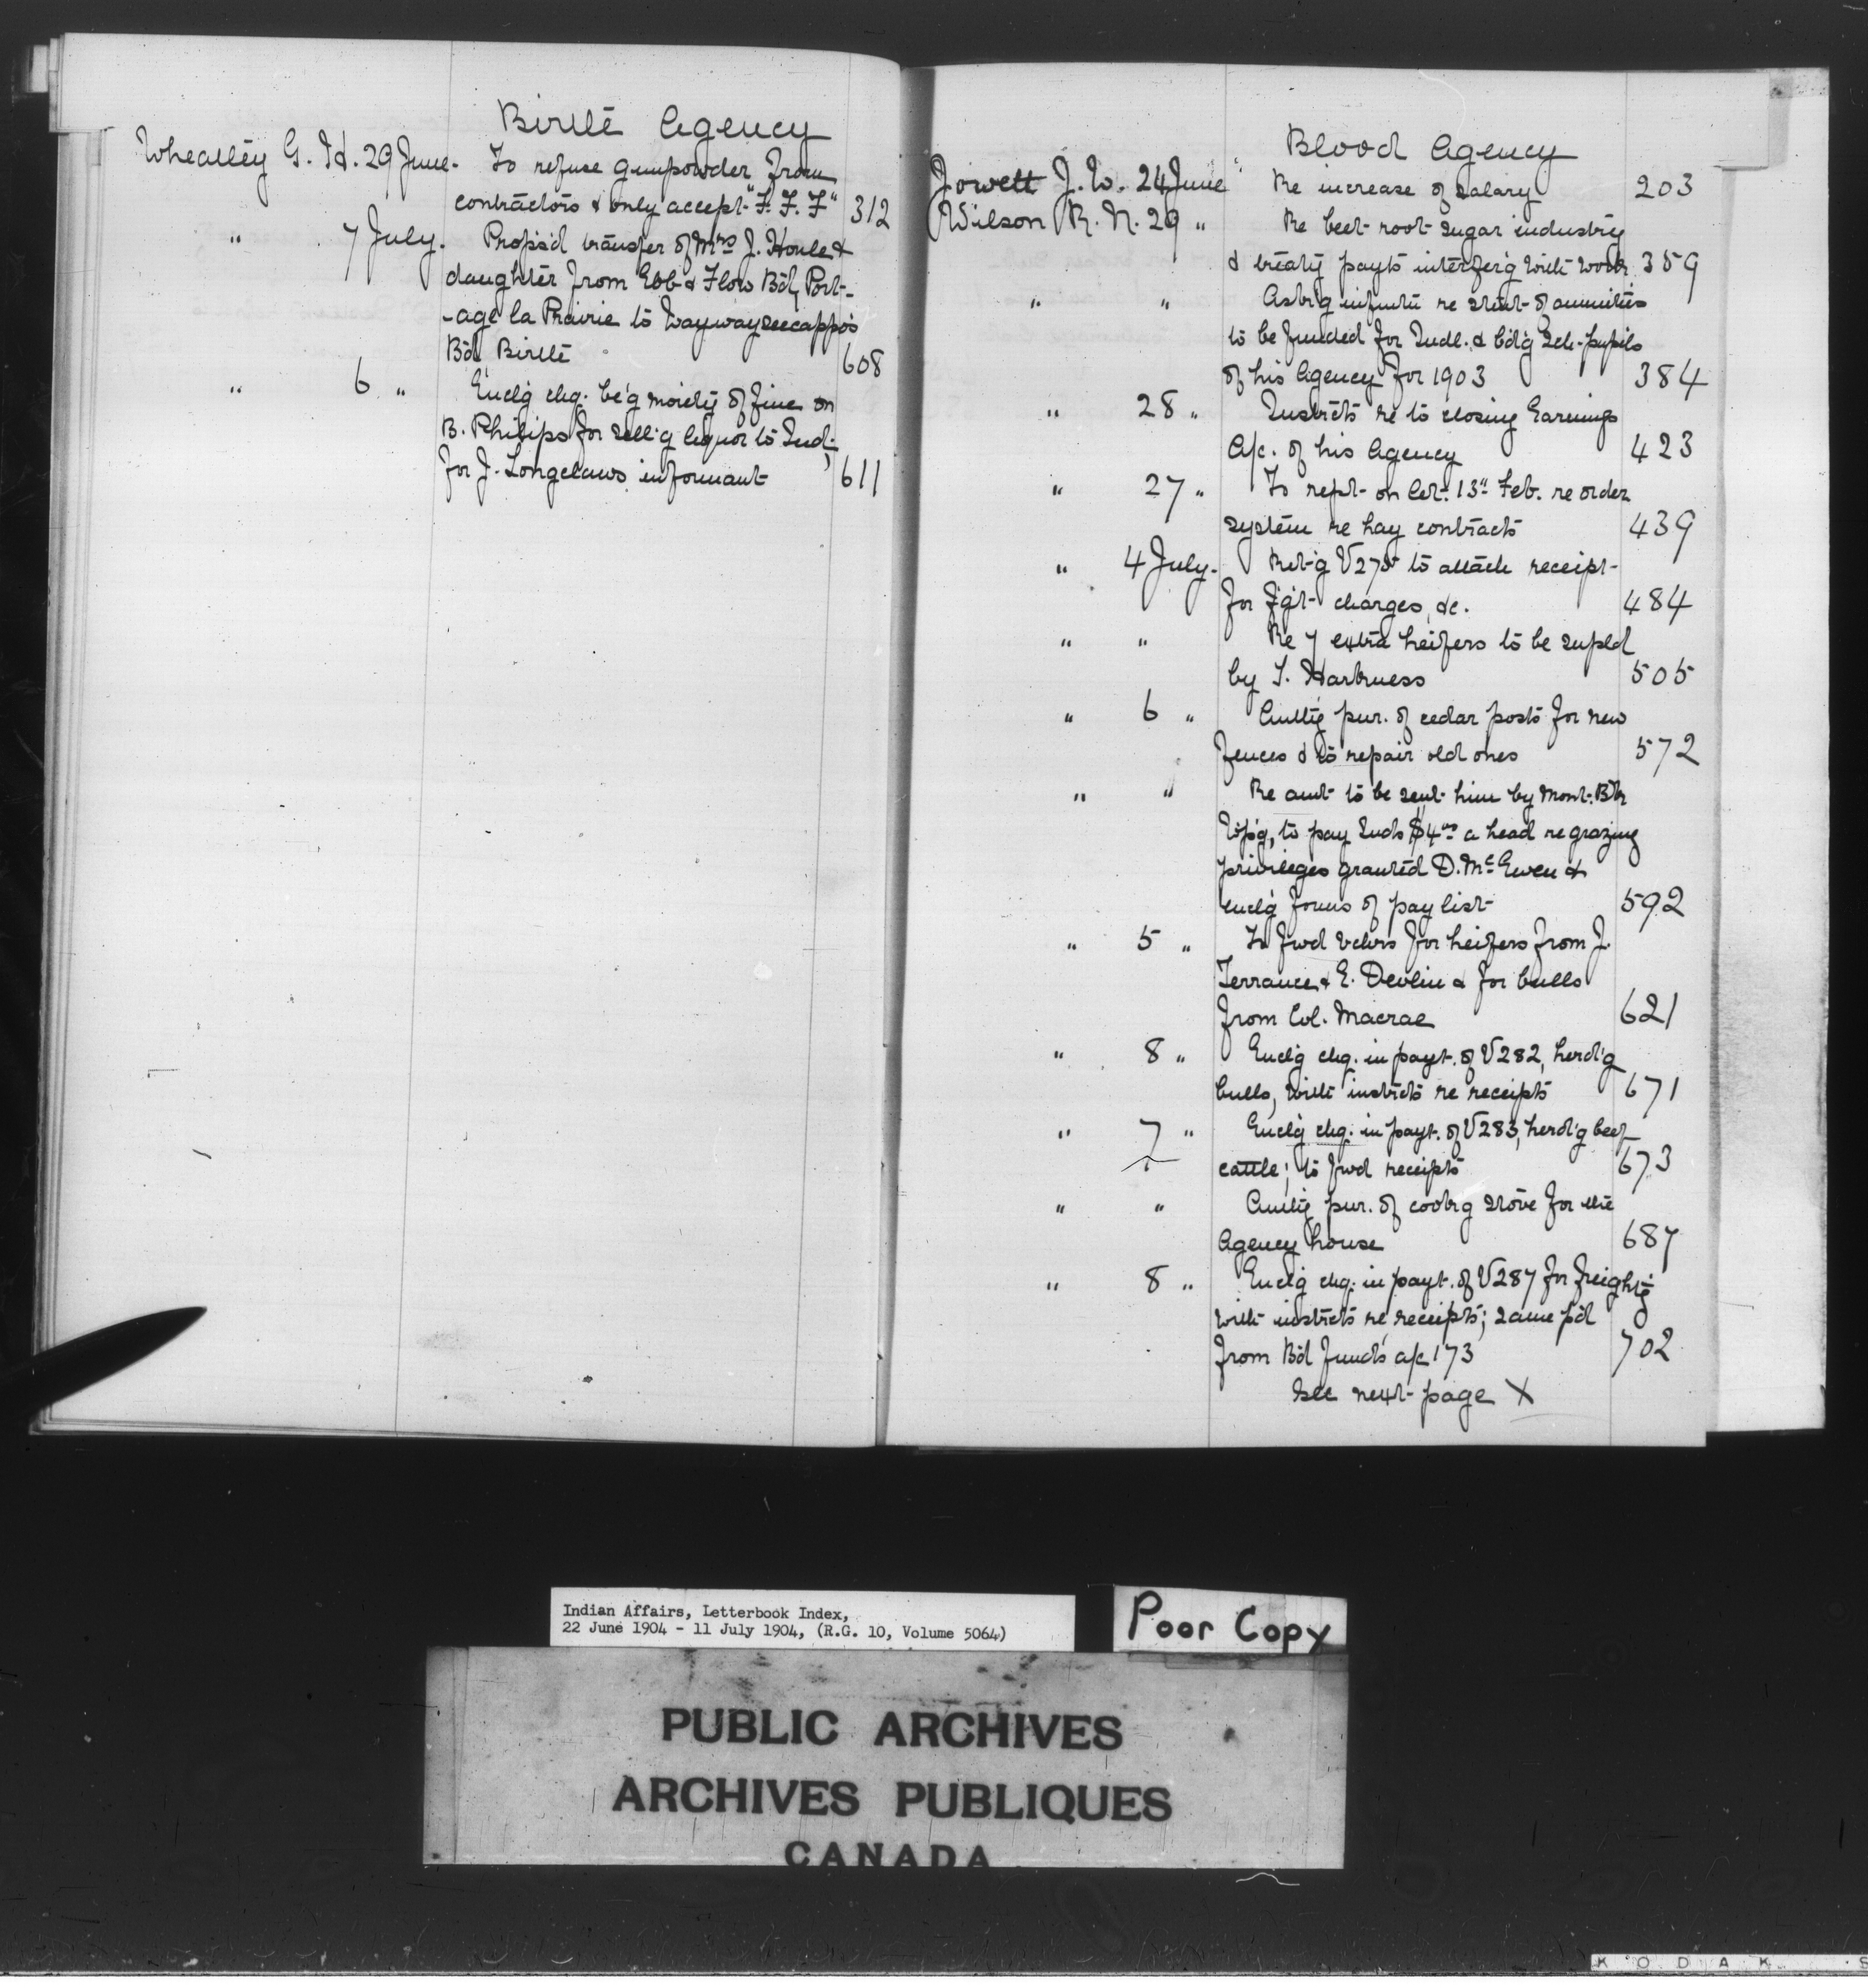 Birtle Agency
Wheatley G. H. 29 June. To refuse gunpowder from
contractors & only accept "F. F. F" 312
" 7 July. Propsd transfer of Mrs J. Houle &
daughter from Ebb & Flow Bd, Port-
-age la Prairie to Waywayseecappo's
Bd Birtle 608
" 6 " Encl'g chq. be'g moiety of fine on
B. Philips for sell'g liquor to Ind.
for J. Longclaws, informant 611
Blood Agency
Jowett J. W. 24 June Re increase of salary 203
Wilson R. N. 29 " Re beet root sugar industry
& treaty payts interfer'g with work 359
" " Ask'g informtn re statt of annuities
to be funded for Indl. & bd'g Sch. pupils
of his Agency for 1903 384
" 28 " Instrcts re to closing Earnings
A/c. of his Agency 423
" 27 " To rept on let. 13" Feb. re order
system re hay contracts 439
" 4 July. Ret'g V275 to attach receipt
for f'g't charges, &c. 484
" " Re 7 extra heifers to be supld
by T. Harkness 505
" 6 " Auth'g pur. of cedar posts for new
fences & to repair old ones 572
" " Re amt to be sent him by Mont. Bk
W'p'g, to pay Inds $4.00 a head re grazing
privileges granted D. McEwen &
encl'g forms of pay list 592
" 5 " To fwd vchrs for heifers from J.
Terrance & E. Devlin & for bulls
from Col. Macrae 621
" 8 " Encl'g chq. in payt. of V282, herd'g
bulls, with instrcts re receipts 671
" 7 " Encl'g chq. in payt. of V283, herd'g beef
cattle; to fwd receipts 673
" " Auth'g pur. of cook'g stove for the
Agency house 687
" 8 " Encl'g chq. in payt. of V287 for freight'g
with instrcts re receipts; same p'd
from Bd Funds a/c 173 702
See next page X
Indian Affairs, Letterbook Index,
22 June 1904 - 11 July 1904, (R.G. 10, Volume 5064)
Poor Copy
PUBLIC ARCHIVES
ARCHIVES PUBLIQUES
CANADA
KODAK S